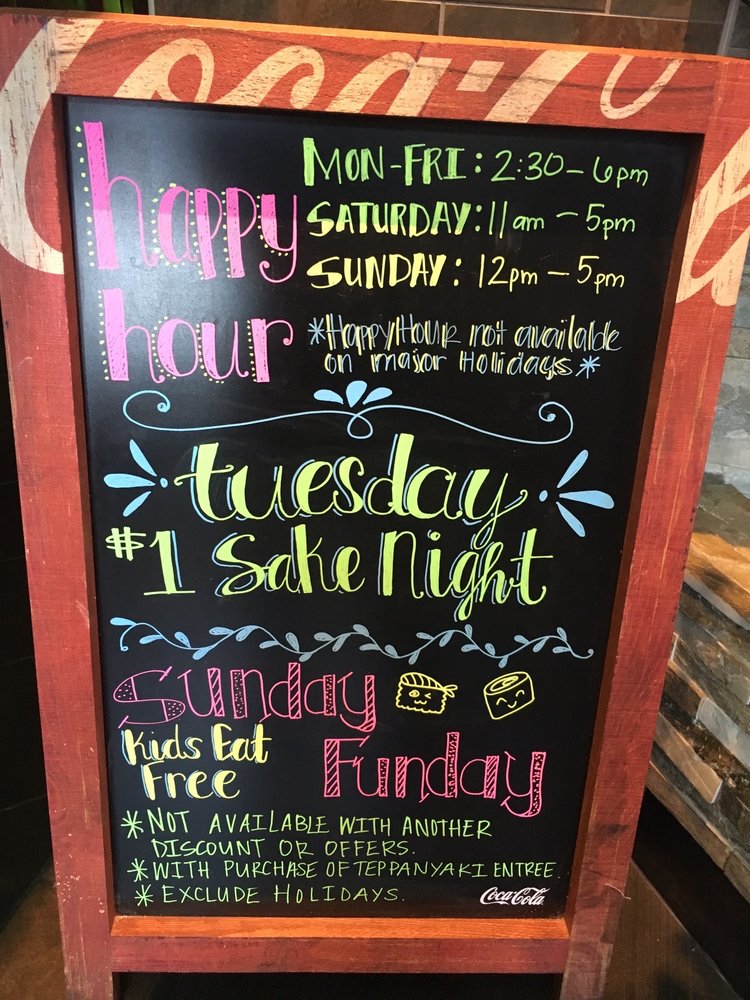 Coca-Cola
happy
hour
MON-FRI: 2:30-6pm
SATURDAY: 11am - 5pm
SUNDAY: 12pm - 5pm
*Happy Hour not available
on major Holidays*
tuesday
$1 Sake Night
Sunday
Funday
Kids Eat
Free
*NOT AVAILABLE WITH ANOTHER
DISCOUNT OR OFFERS.
*WITH PURCHASE OF TEPPANYAKI ENTREE.
*EXCLUDE HOLIDAYS.
Coca-Cola